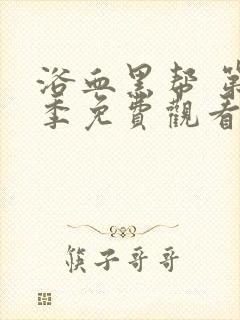 浴血黑帮 第
季免費觀看
筷子哥哥